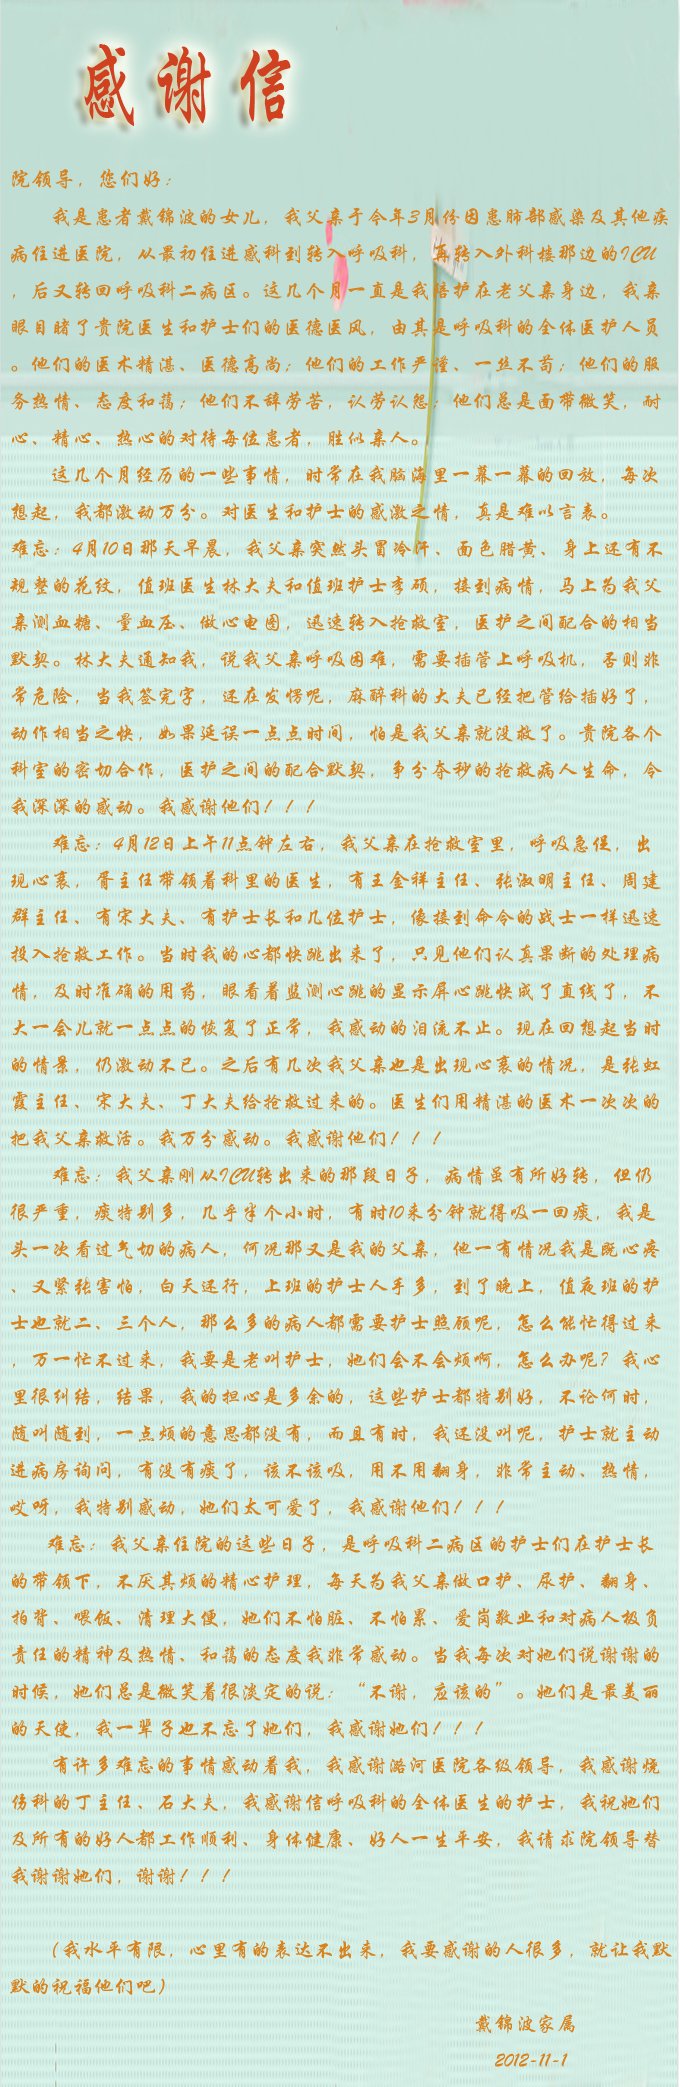 感谢信
院领导，您们好：
我是患者戴锦波的女儿，我父亲于今年3月份因患肺部感染及其他疾
病住进医院，从最初住进感科到转入呼吸科，再转入外科楼那边的ICU
，后又转回呼吸科二病区。这几个月一直是我陪护在老父亲身边，我亲
眼目睹了贵院医生和护士们的医德医风，由其是呼吸科的全体医护人员
。他们的医术精湛、医德高尚；他们的工作严谨、一丝不苟；他们的服
务热情、态度和蔼；他们不辞劳苦，认劳认怨；他们总是面带微笑，耐
心、精心、热心的对待每位患者，胜似亲人。
这几个月经历的一些事情，时常在我脑海里一幕一幕的回放，每次
想起，我都激动万分。对医生和护士的感激之情，真是难以言表。
难忘：4月10日那天早晨，我父亲突然头冒冷汗、面色腊黄、身上还有不
规整的花纹，值班医生林大夫和值班护士李硕，接到病情，马上为我父
亲测血糖、量血压、做心电图，迅速转入抢救室，医护之间配合的相当
默契。林大夫通知我，说我父亲呼吸困难，需要插管上呼吸机，否则非
常危险，当我签完字，还在发愣呢，麻醉科的大夫已经把管给插好了，
动作相当之快，如果延误一点点时间，怕是我父亲就没救了。贵院各个
科室的密切合作，医护之间的配合默契，争分夺秒的抢救病人生命，令
我深深的感动。我感谢他们！！！
难忘：4月12日上午11点钟左右，我父亲在抢救室里，呼吸急促，出
现心衰，胥主任带领着科里的医生，有王金祥主任、张淑明主任、周建
群主任、有宋大夫、有护士长和几位护士，像接到命令的战士一样迅速
投入抢救工作。当时我的心都快跳出来了，只见他们认真果断的处理病
情，及时准确的用药，眼看着监测心跳的显示屏心跳快成了直线了，不
大一会儿就一点点的恢复了正常，我感动的泪流不止。现在回想起当时
的情景，仍激动不已。之后有几次我父亲也是出现心衰的情况，是张虹
霞主任、宋大夫、丁大夫给抢救过来的。医生们用精湛的医术一次次的
把我父亲救活。我万分感动。我感谢他们！！！
难忘：我父亲刚从ICU转出来的那段日子，病情虽有所好转，但仍
很严重，痰特别多，几乎半个小时，有时10来分钟就得吸一回痰，我是
头一次看过气切的病人，何况那又是我的父亲，他一有情况我是既心疼
、又紧张害怕，白天还行，上班的护士人手多，到了晚上，值夜班的护
士也就二、三个人，那么多的病人都需要护士照顾呢，怎么能忙得过来
，万一忙不过来，我要是老叫护士，她们会不会烦啊，怎么办呢？我心
里很纠结，结果，我的担心是多余的，这些护士都特别好，不论何时，
随叫随到，一点烦的意思都没有，而且有时，我还没叫呢，护士就主动
进病房询问，有没有痰了，该不该吸，用不用翻身，非常主动、热情，
哎呀，我特别感动，她们太可爱了，我感谢他们！！！
难忘：我父亲住院的这些日子，是呼吸科二病区的护士们在护士长
的带领下，不厌其烦的精心护理，每天为我父亲做口护、尿护、翻身、
拍背、喂饭、清理大便，她们不怕脏、不怕累、爱岗敬业和对病人极负
责任的精神及热情、和蔼的态度我非常感动。当我每次对她们说谢谢的
时候，她们总是微笑着很淡定的说：“不谢，应该的”。她们是最美丽
的天使，我一辈子也不忘了她们，我感谢她们！！！
有许多难忘的事情感动着我，我感谢潞河医院各级领导，我感谢烧
伤科的丁主任、石大夫，我感谢信呼吸科的全体医生的护士，我祝她们
及所有的好人都工作顺利、身体健康、好人一生平安，我请求院领导替
我谢谢她们，谢谢！！！
（我水平有限，心里有的表达不出来，我要感谢的人很多，就让我默
默的祝福他们吧）
戴锦波家属
2012-11-1